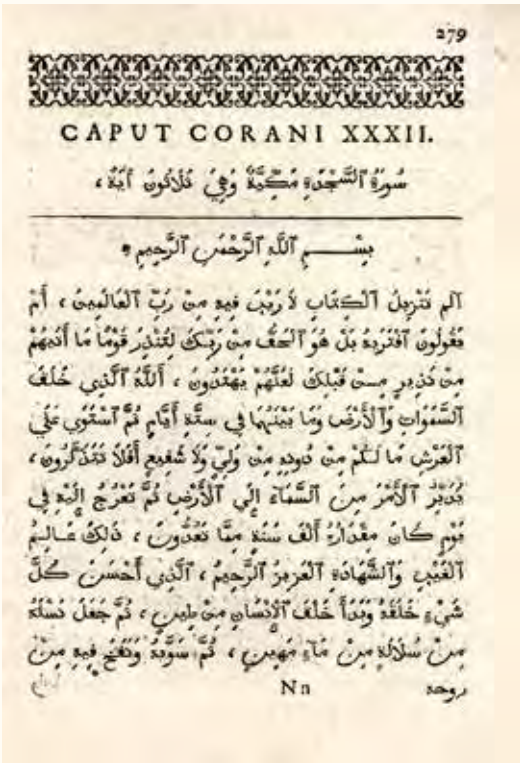 279
CAPUT CORANI XXXII.
سُورَةُ ٱلسَّجْدَةِ مَكِّيَّةٌ وَهِيَ ثَلَاثُونَ آيَةً ،
بِسْــــمِ ٱللَّهِ ٱلرَّحْمَنِ ٱلرَّحِيمِ
آلم تَنْزِيلُ ٱلْكِتَابِ لَا رَيْبَ فِيهِ مِنْ رَبِّ ٱلْعَالَمِينَ ، أَمْ
يَقُولُونَ ٱفْتَرَيهُ بَلْ هُوَ ٱلْحَقُّ مِنْ رَبِّكَ لِتُنْذِرَ قَوْمًا مَا أَتَيهُمْ
مِنْ نَذِيرٍ مِنْ قَبْلِكَ لَعَلَّهُمْ يَهْتَدُونَ ، أَللَّهُ ٱلَّذِي خَلَقَ
ٱلسَّمَوَاتِ وَٱلْأَرْضَ وَمَا بَيْنَهُمَا فِي سِتَّةِ أَيَّامٍ ثُمَّ ٱسْتَوَى عَلَى
ٱلْعَرْشِ مَا لَكُمْ مِنْ دُونِهِ مِنْ وَلِيٍّ وَلَا شَفِيعٍ أَفَلَا تَتَذَكَّرُونَ ،
يُدَبِّرُ ٱلْأَمْرَ مِنَ ٱلسَّمَآءِ إِلَى ٱلْأَرْضِ ثُمَّ تَعْرُجُ إِلَيْهِ فِي
يَوْمٍ كَانَ مِقْدَارُهُ أَلْفَ سَنَةٍ مِمَّا تَعُدُّونَ ، ذَلِكَ عَالِمُ
ٱلْغَيْبِ وَٱلشَّهَادَةِ ٱلْعَزِيزُ ٱلرَّحِيمُ ، ٱلَّذِي أَحْسَنَ كُلَّ
شَيْءٍ خَلَقَهُ وَبَدَأَ خَلْقَ ٱلْإِنْسَانِ مِنْ طِينٍ ، ثُمَّ جَعَلَ نَسْلَهُ
مِنْ سُلَالَةٍ مِنْ مَآءٍ مَهِينٍ ، ثُمَّ سَوَّيهُ وَنَفَخَ فِيهِ مِنْ
Nn روحه